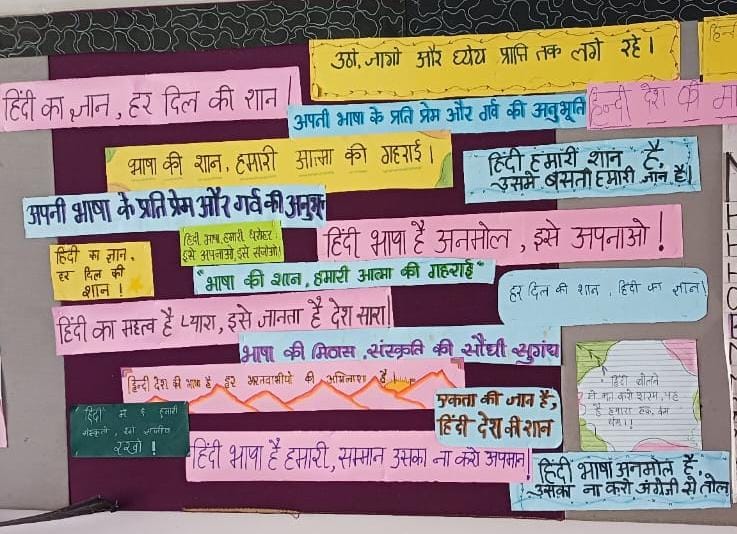 उठो, जागो और ध्येय प्राप्ति तक लगे रहे।
हिंदी का ज्ञान, हर दिल की शान!
अपनी भाषा के प्रति प्रेम और गर्व की अनुभूति
हिन्दी देश की
भाषा की शान, हमारी आत्मा की गहराई।
हिंदी हमारी शान है,
उसमे बसती हमारी जान है।
अपनी भाषा के प्रति प्रेम और गर्व की
हिंदी भाषा, हमारी धरोहर;
इसे अपनाओ, इसे संजोओ!
हिंदी भाषा है अनमोल, इसे अपनाओ!
हिंदी का ज्ञान,
हर दिल की
शान!
"भाषा की शान, हमारी आत्मा की गहराई"
हर दिल की शान, हिंदी का ज्ञान।
हिंदी का महत्व है प्यारा, इसे जानता है देश सारा।
भाषा की मिठास, संस्कृति की सौंधी सुगंध
हिन्दी देश की भाषा है हर भारतवासीयो की अभिलाषा है।
एकता की जान है,
हिंदी देश की शान
हिंदी बोलने
में मत करो शरम, यह
है हमारा
हिंदी में है हमारी
संस्कृती,
रखो!
हिंदी भाषा है हमारी, सम्मान उसका ना करो अपमान!
हिंदी भाषा अनमोल है,
उसका ना करो अंग्रेजी से तोल